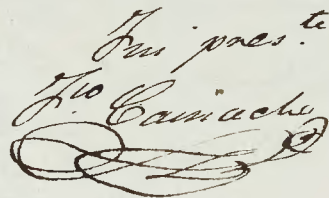 Fui pres.te
Fco Camacho